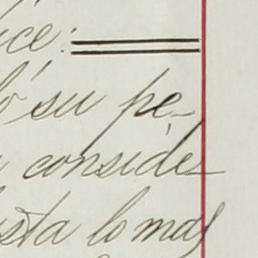 ice:
ó su pe-
conside-
sta lo mas